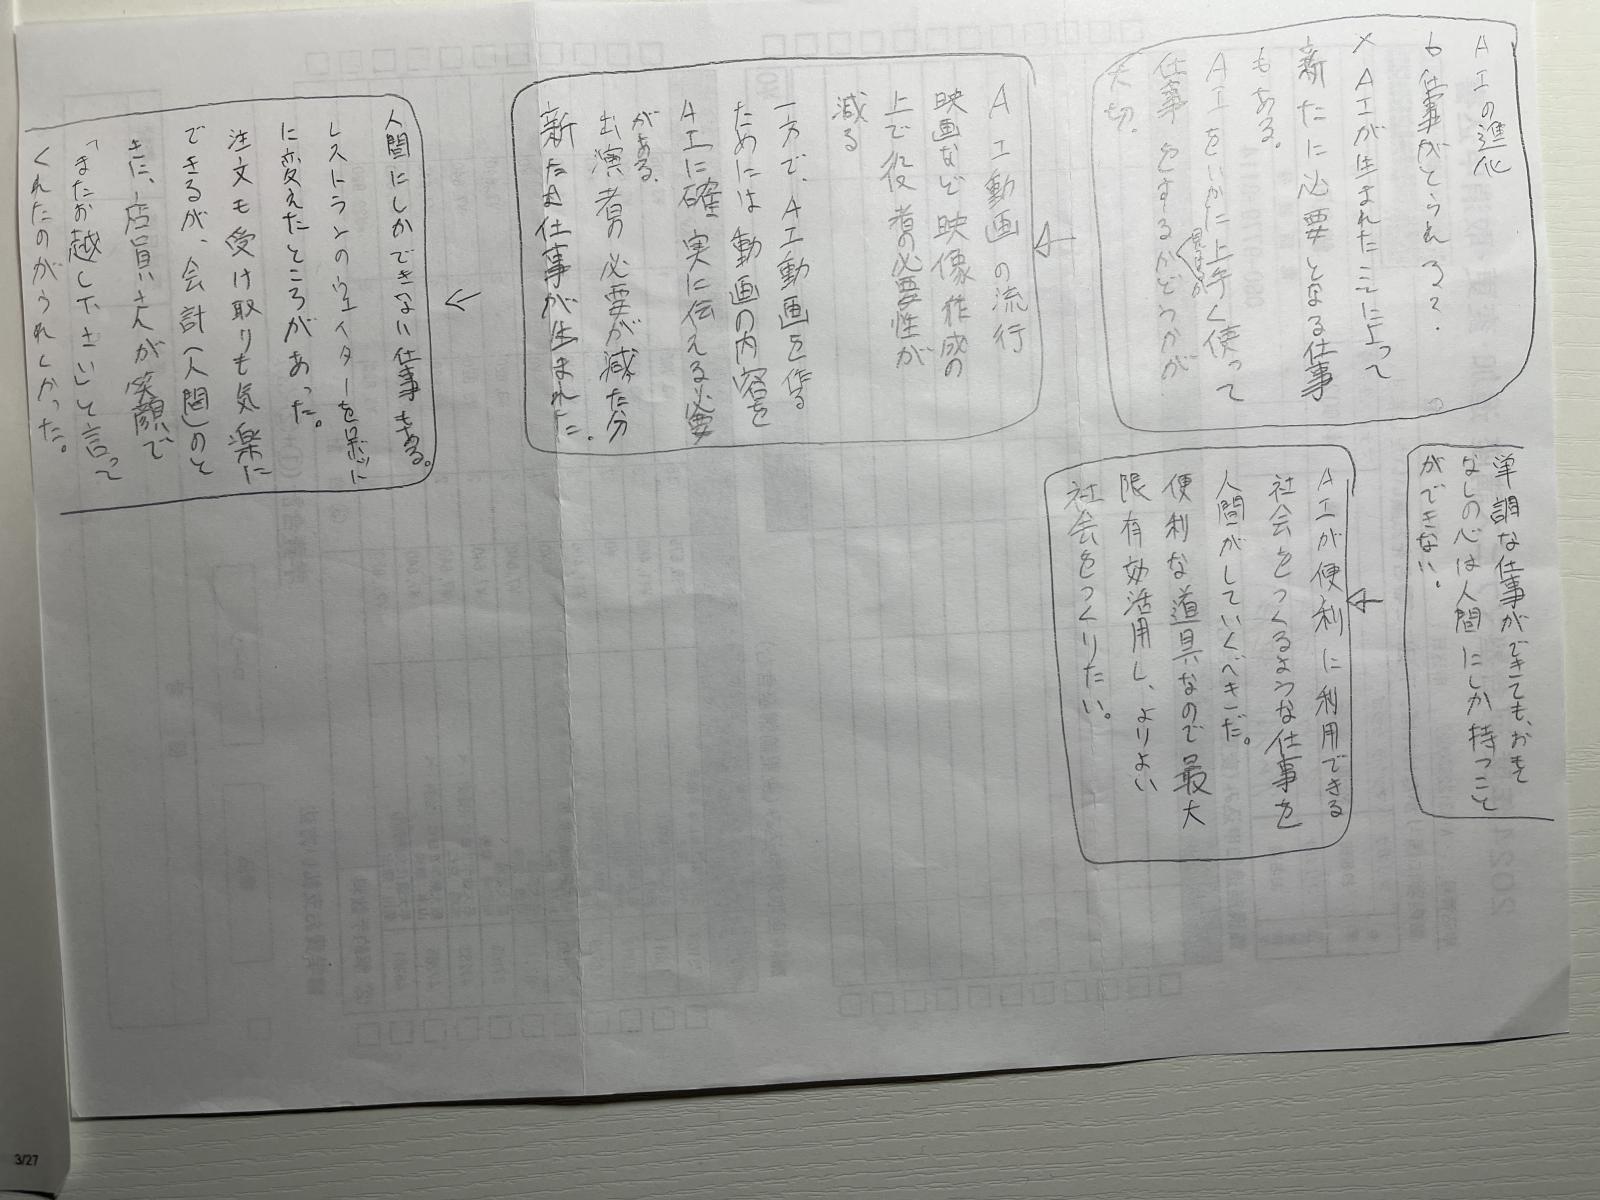 AIの進化
↳仕事がとられる?
× AIが生まれたことによって
新たに必要となる仕事
もある。
AIをいかに上手く使って
仕事をするかどうかが
大切。
AI動画の流行
映画など映像作成の
上で役者の必要性が
減る
一方で、AI動画を作る
ためには動画の内容を
AIに確実に伝える必要
がある。
出演者の必要が減った分
新たな仕事が生まれた。
人間にしかできない仕事もある。
レストランのウェイターをロボットに
に変えたところがあった。
注文も受け取りも気楽に
できるが、会計(人間)のと
きに、店員さんが笑顔で
「またお越し下さい」と言って
くれたのがうれしかった。
単調な仕事ができても、おもて
なしの心は人間にしか持つこと
ができない。
AIが便利に利用できる
社会をつくるような仕事を
人間がしていくべきだ。
便利な道具なので最大
限有効活用し、よりよい
社会をつくりたい。
3/27